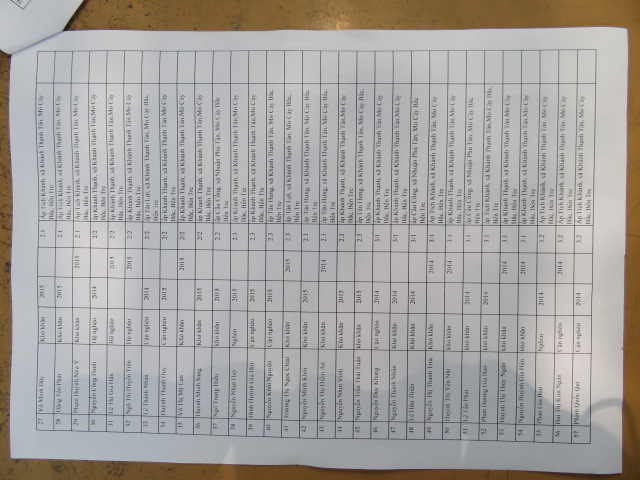 27 Võ Minh Đức Khó khăn 2015 2.1 Ấp Tích Khánh, xã Khánh Thạnh Tân, Mỏ Cày Bắc, Bến Tre
28 Đặng Tấn Phát Khó khăn 2015 2.1 Ấp Tích Khánh, xã Khánh Thạnh Tân, Mỏ Cày Bắc, Bến Tre
29 Phạm Huỳnh Như Ý Khó khăn 2015 2.1 Ấp Tích Khánh, xã Khánh Thạnh Tân, Mỏ Cày Bắc, Bến Tre
30 Nguyễn Công Danh Hộ nghèo 2014 2/2 ấp Khánh Thạnh, xã Khánh Thạnh Tân, Mỏ Cày Bắc, Bến Tre
31 Lê Thị Gia Hân Hộ nghèo 2015 2/2 ấp Khánh Thạnh, xã Khánh Thạnh Tân, Mỏ Cày Bắc, Bến Tre
32 Ngô Thị Huyền Trân Hộ nghèo 2015 2/2 ấp Khánh Thạnh, xã Khánh Thạnh Tân, Mỏ Cày Bắc, Bến Tre
33 Lê Thành Nhân Cận nghèo 2014 2/2 ấp Tân Lợi, xã Khánh Thạnh Tân, Mỏ Cày Bắc, Bến Tre
34 Huỳnh Thanh Huy Cận nghèo 2015 2/2 ấp Khánh Thạnh, xã Khánh Thạnh Tân, Mỏ Cày Bắc, Bến Tre
35 Võ Thị Mỹ Lan Khó khăn 2015 2/2 ấp Khánh Thạnh, xã Khánh Thạnh Tân, Mỏ Cày Bắc, Bến Tre
36 Huỳnh Minh Sang Khó khăn 2015 2/2 ấp Khánh Thạnh, xã Khánh Thạnh Tân, Mỏ Cày Bắc, Bến Tre
37 Ngô Trọng Hiếu Khó khăn 2015 2/2 ấp Cầu Công, xã Nhuận Phú Tân, Mỏ Cày Bắc, Bến Tre
38 Nguyễn Nhật Huy Nghèo 2015 2.3 ấp Khánh Thạnh, xã Khánh Thạnh Tân, Mỏ Cày Bắc, Bến Tre
39 Đinh Huỳnh Gia Huy Cận nghèo 2015 2.3 ấp Khánh Thạnh, xã Khánh Thạnh Tân, Mỏ Cày Bắc, Bến Tre
40 Nguyễn Khôi Nguyên Cận nghèo 2015 2.3 ấp Tân Hưng, xã Khánh Thạnh Tân, Mỏ Cày Bắc, Bến Tre
41 Trương Thị Ngọc Châu Khó khăn 2015 2.3 ấp Tân Lợi, xã Khánh Thạnh Tân, Mỏ Cày Bắc, Bến Tre
42 Nguyễn Minh Khôi Khó khăn 2015 2.3 ấp Tân Hưng, xã Khánh Thạnh Tân, Mỏ Cày Bắc, Bến Tre
43 Nguyễn Thị An khó khăn 2014 2.3 ấp Tân Hưng, xã Khánh Thạnh Tân, Mỏ Cày Bắc, Bến Tre
44 Nguyễn Nhật Vinh Khó khăn 2015 2.3 ấp Khánh Thạnh, xã Khánh Thạnh Tân, Mỏ Cày Bắc, Bến Tre
45 Nguyễn Trần Thái Tuấn khó khăn 2015 2.3 ấp Tân Hưng, xã Khánh Thạnh Tân, Mỏ Cày Bắc, Bến Tre
46 Nguyễn Duy Khang Cận nghèo 2014 3/1 ấp Khánh Thạnh, xã Khánh Thạnh Tân, Mỏ Cày Bắc, Bến Tre
47 Nguyễn Thành Nhân Khó khăn 2014 3/1 ấp Khánh Thạnh, xã Khánh Thạnh Tân, Mỏ Cày Bắc, Bến Tre
48 Lê Hữu Thiện Khó khăn 2014 3/1 ấp Cầu Công, xã Nhuận Phú Tân, Mỏ Cày Bắc, Bến Tre
49 Nguyễn Thị Thanh Trúc Khó khăn 2014 3.1 Ấp Tích Khánh, xã Khánh Thạnh Tân, Mỏ Cày Bắc, Bến Tre
50 Huỳnh Thị Yến Nhi khó khăn 2014 3.1 ấp Khánh Thạnh, xã Khánh Thạnh Tân, Mỏ Cày Bắc, Bến Tre
51 Lê Tấn Phát khó khăn 2014 3.1 ấp Cầu Công, xã Nhuận Phú Tân, Mỏ Cày Bắc, Bến Tre
52 Phan Dương Gia Bảo Khó khăn 2014 3.1 ấp Tích Khánh, xã Khánh Thạnh Tân, Mỏ Cày Bắc, Bến Tre
53 Huỳnh Thị Thúy Ngân Khó khăn 2014 3.1 ấp Khánh Thạnh, xã Khánh Thạnh Tân, Mỏ Cày Bắc, Bến Tre
54 Nguyễn Huỳnh Gia Hân khó khăn 2014 3.1 ấp Khánh Thạnh, xã Khánh Thạnh Tân, Mỏ Cày Bắc, Bến Tre
55 Phan Gia Bảo Nghèo 2014 3.2 Ấp Tích Khánh, xã Khánh Thạnh Tân, Mỏ Cày Bắc, Bến Tre
56 Bùi Thị Kim Ngân Cận nghèo 2014 3.2 Ấp Tích Khánh, xã Khánh Thạnh Tân, Mỏ Cày Bắc, Bến Tre
57 Phạm Quốc Qui Cận nghèo 2014 3.2 Ấp Tích Khánh, xã Khánh Thạnh Tân, Mỏ Cày Bắc, Bến Tre